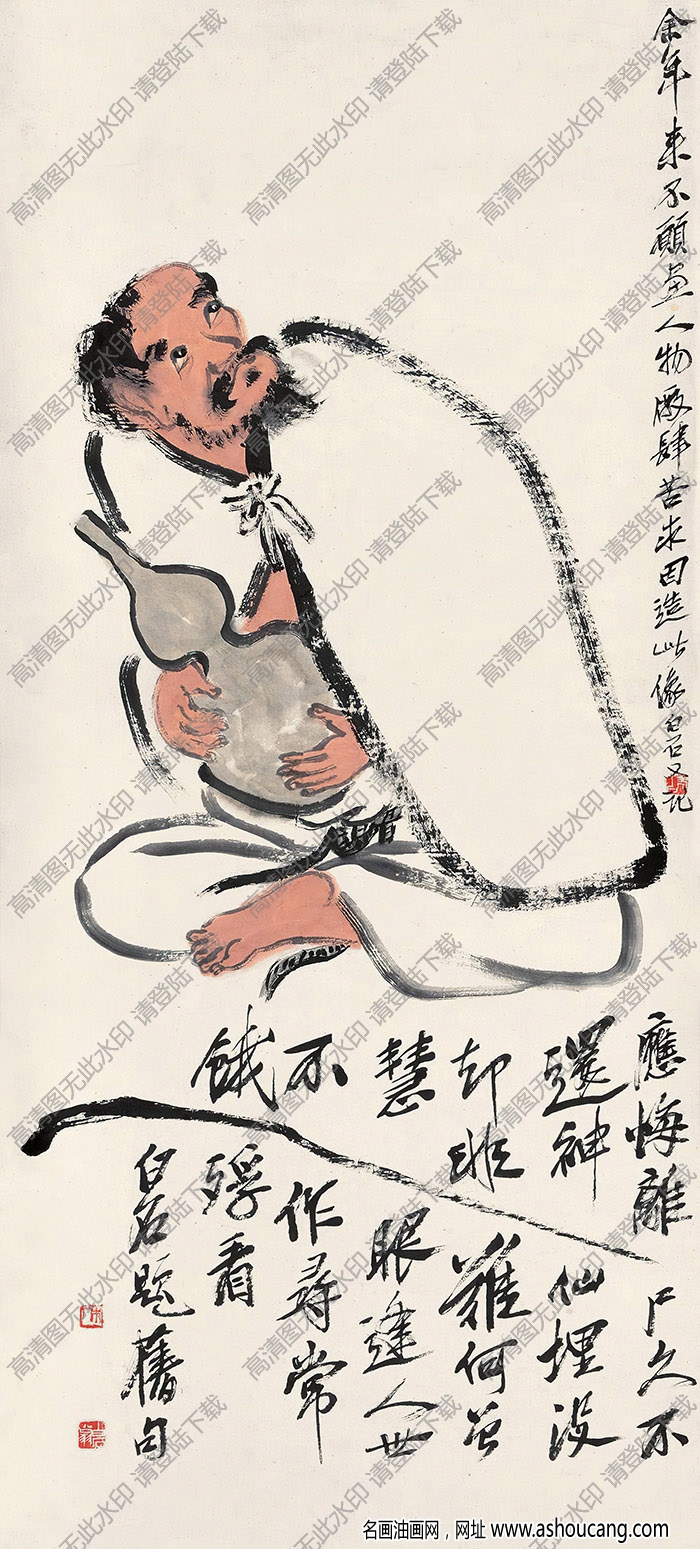 余年来不愿画人物厰肆苦求因造此像白石又记
應悔離尸久不
還神仙埋没
却非難何曾
慧眼逢人世
不作尋常
餓殍看
白石題舊句
高清图无此水印 请登陆下载
名画油画网，网址 www.ashoucang.com